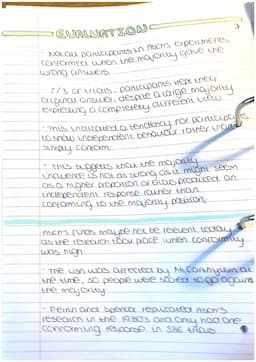 EVALUATION
- Not all participants in Asch's experiments
conformed when the majority gave the
wrong answers
- 2/3 of trials, participants kept their
original answer, despite a large majority
expressing a completely different view
- This indicated a tendency for participants
to show independent behaviour rather than
simply conform
- This suggests that the majority
influence is not as strong as it might seem
as a higher proportion of trials produced an
independent response rather than
conforming to the majority position
Asch's finds maybe not be relevent today
as the research took place when conformity
was high
- The USA was affected by McCarthyism at
the time, so people were scared to go against
the majority
- Perrin and Spencer replicated Asch's
research in the 1980's and only had one
conforming response in 386 trials